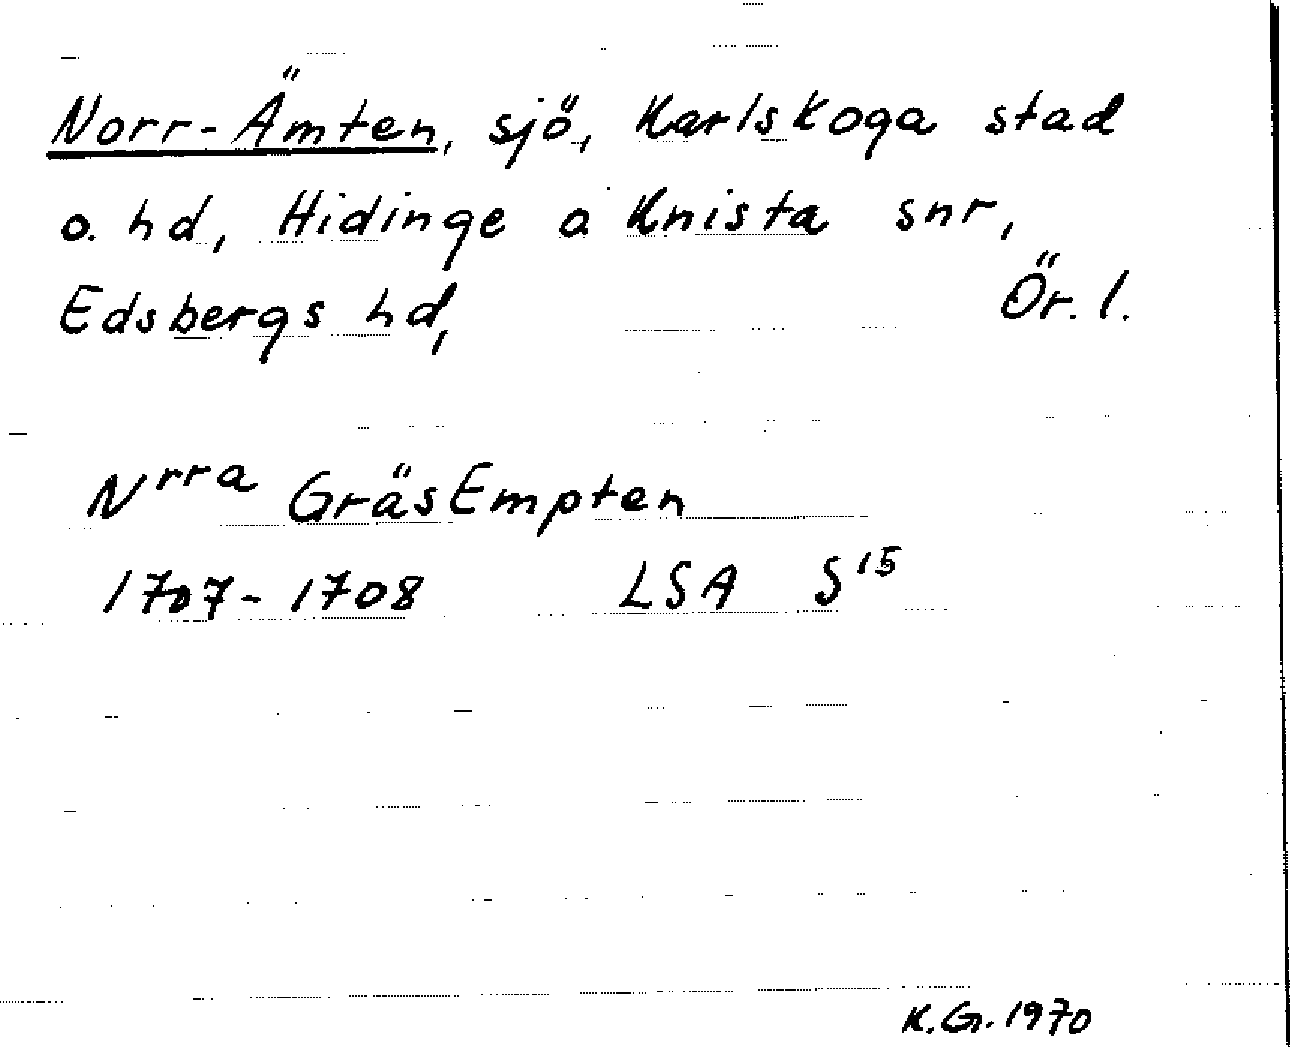 Norr-Ämten, sjö, Karlskoga stad
o. hd, Hidinge o Knista snr,
Edsbergs hd, Ör. l.
Nrra GräsEmpten
1707-1708 LSA S15
K.G. 1970